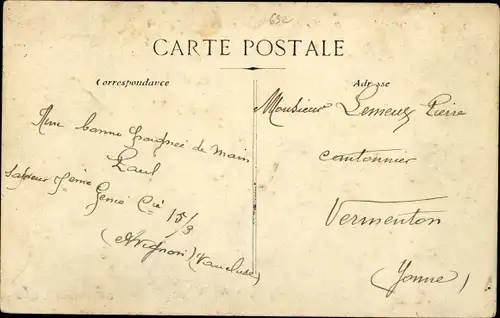 632
CARTE POSTALE
Correspondance
Adresse
Une bonne poignée de main
Paul
Sapeur 7ème Génie Cie 15/3
(Avignon) (Vaucluse)
Monsieur Lemeux Pierre
cantonnier
Vermenton
(Yonne)